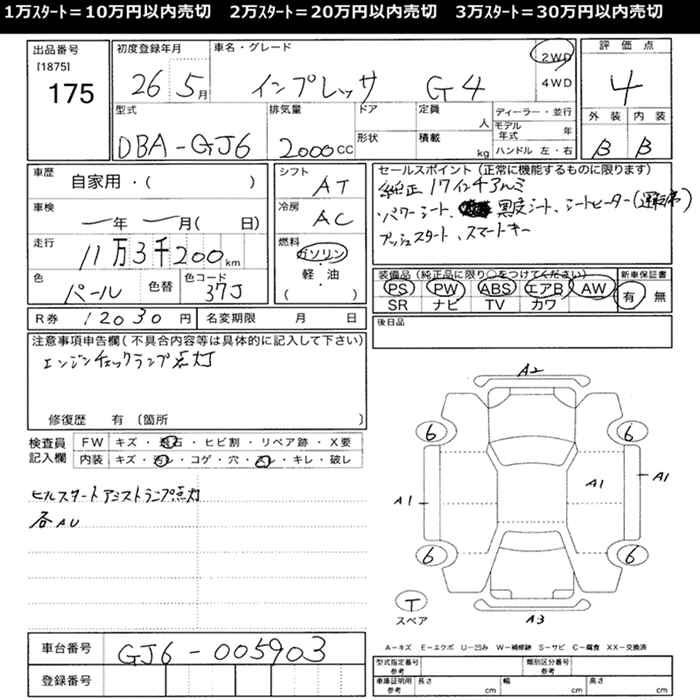 1万ｽﾀｰﾄ＝10万円以内売切　2万ｽﾀｰﾄ＝20万円以内売切　3万ｽﾀｰﾄ＝30万円以内売切
出品番号
[1875]
175
初度登録年月
26 5月
車名・グレード
インプレッサ G4
2WD
4WD
評価点
4
外装 内装
B B
型式
DBA-GJ6
排気量
2000CC
ドア
形状
定員
人
積載
kg
ディーラー・並行
モデル年式 年
ハンドル 左・右
車歴
自家用・( )
車検
一年 一月( 日)
走行
11万3千200km
色
パール
色替
色コード
37J
シフト
AT
冷房
AC
燃料
ガソリン
・
軽・油
( )
セールスポイント(正常に機能するものに限ります)
純正17インチアルミ
・パワーシート、黒皮シート、シートヒーター(運転席)
プッシュスタート、スマートキー
装備品(純正品に限り○をつけてください)
PS PW ABS エアB AW
SR ナビ TV カワ
新車保証書
有 無
R券 12030円
名変期限 月 日
後日品
注意事項申告欄(不具合内容等は具体的に記入して下さい)
エンジンチェックランプ点灯
修復歴 有 〔箇所 〕
検査員
記入欄
FW キズ・飛石・ヒビ割・リペア跡・X要
内装 キズ・汚レ・コゲ・穴・スレ・キレ・破レ
ヒルスタートアシストランプ点灯
各AU
A2
6 6
A1 A1 A1
6 6
T
スペア
A3
車台番号
GJ6-005903
登録番号
A－キズ E－エクボ U－凹み W－補修跡 S－サビ C－腐食 XX－交換済
型式指定番号
参考
類別区分番号
参考
車庫証明用
参考
長さ cm
幅 cm
高さ cm